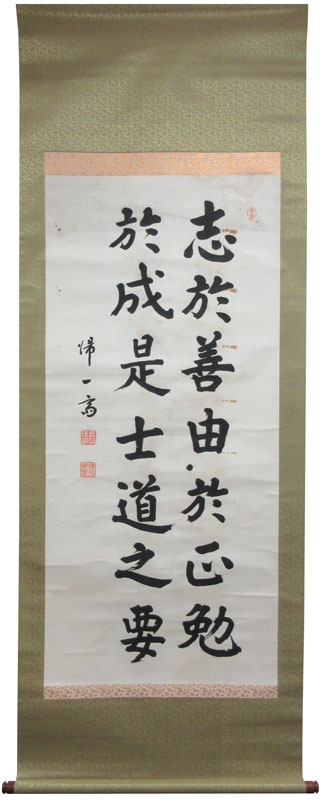 志於善由於正勉
於成是士道之要
帰一斎